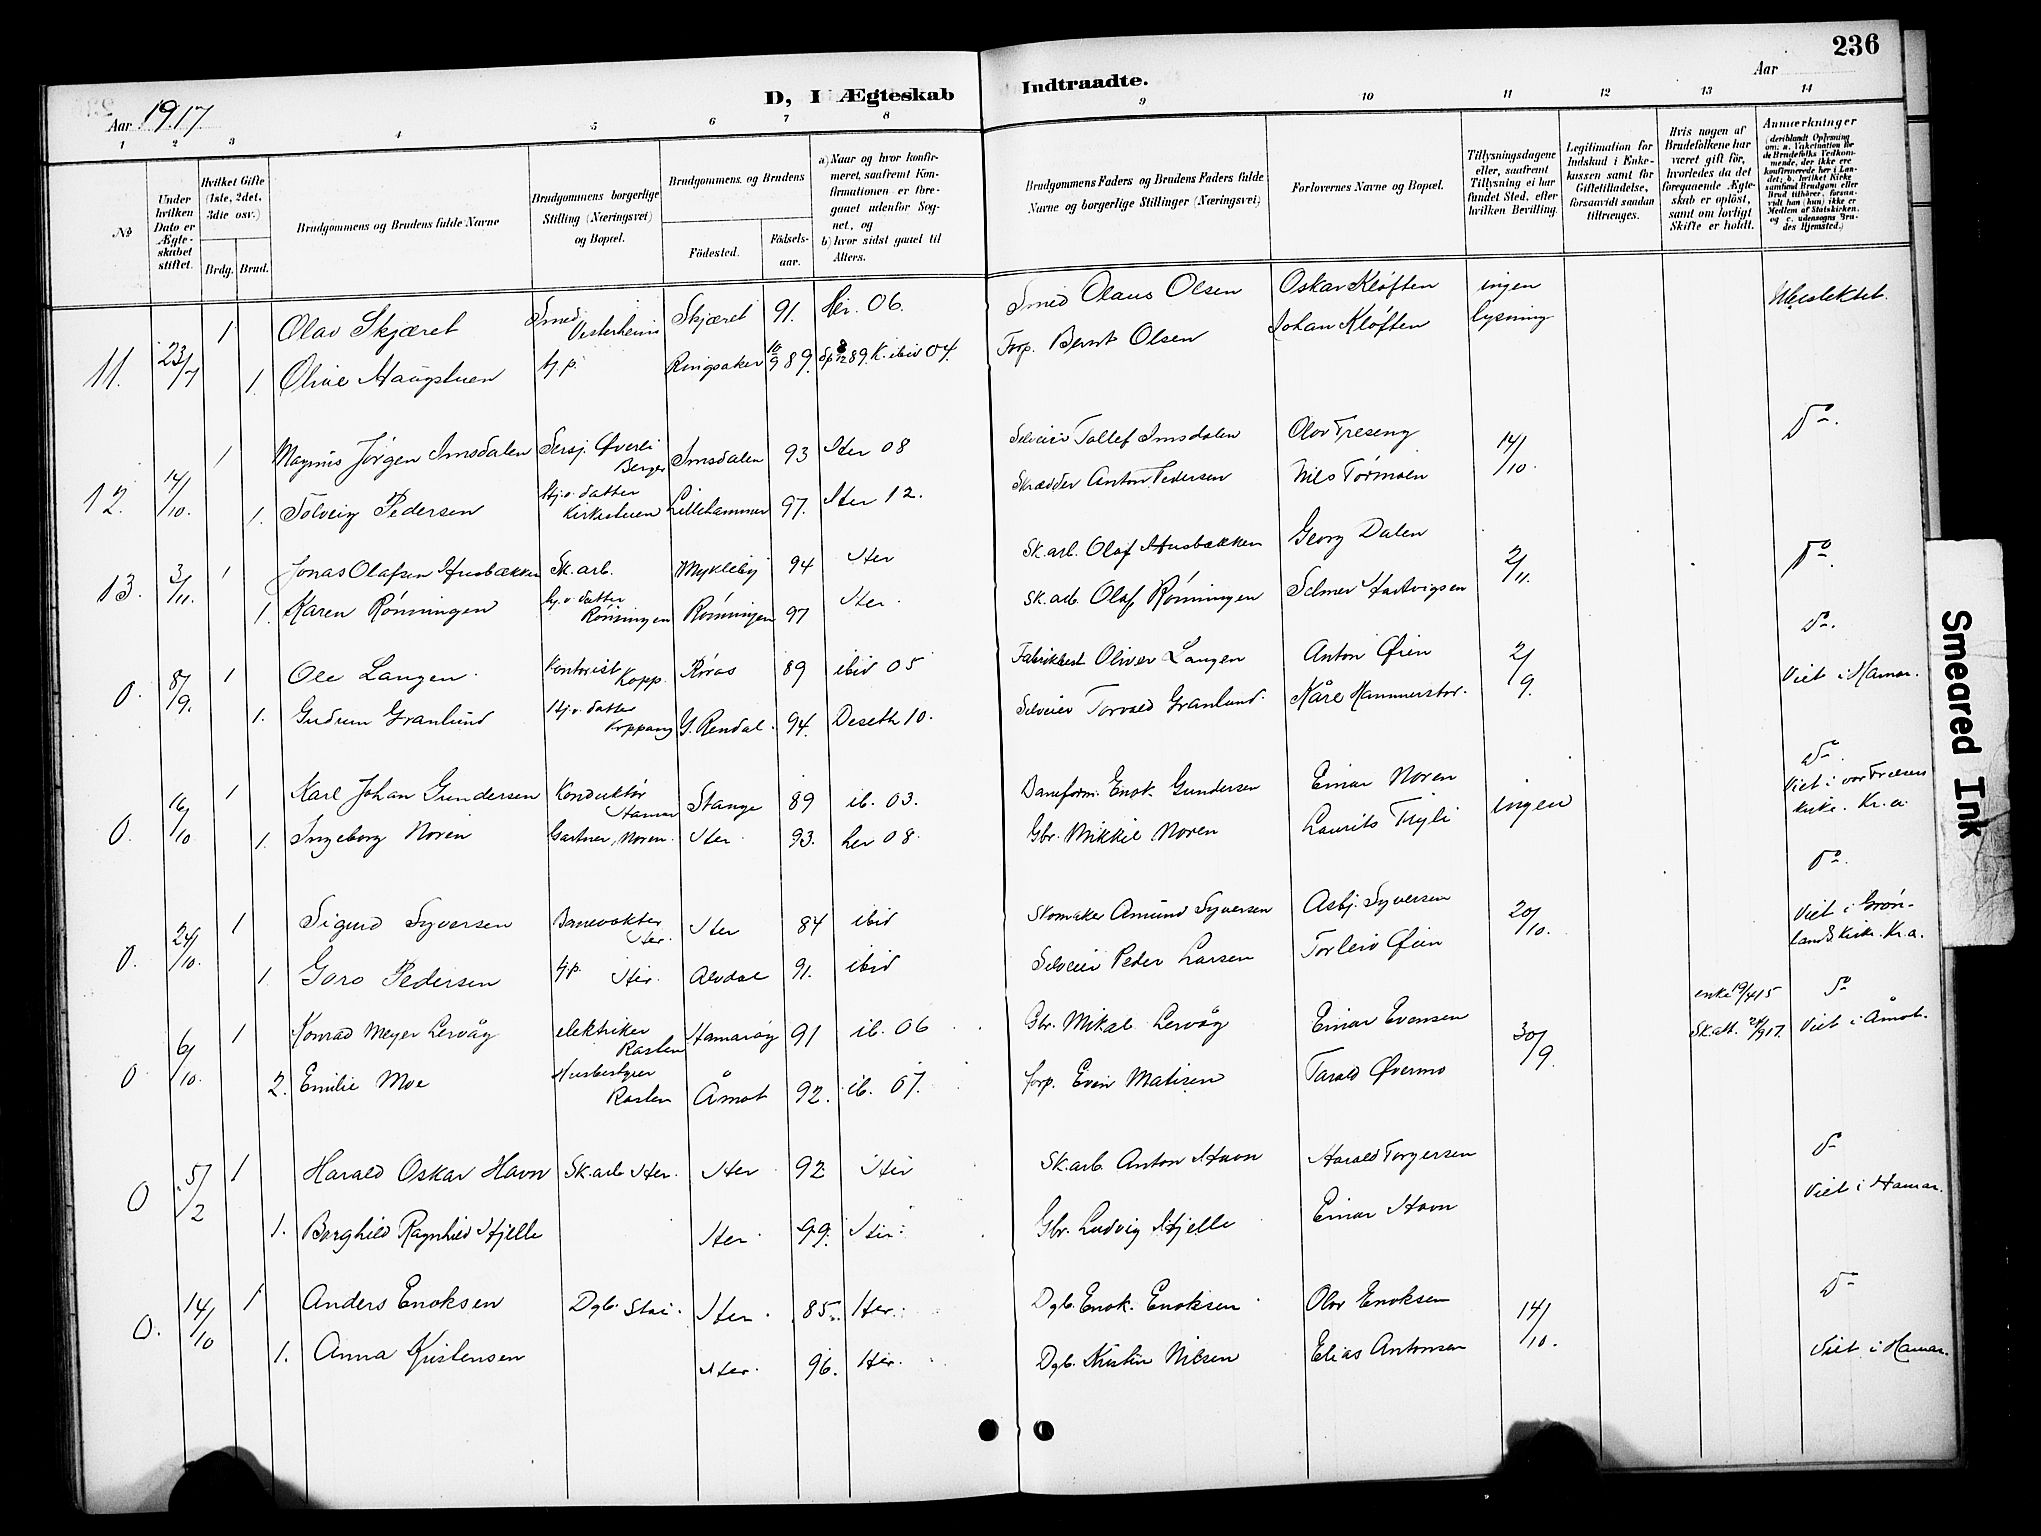 236
D, I Ægteskab Indtraadte.
Aar 1917
Aar
1 2 3 4 5 6 7 8 9 10 11 12 13 14
No
Under hvilken Dato er Ægteskabet stiftet.
Hvilket Gifte (1ste, 2det, 3die osv.)
Brdg. Brud.
Brudgommens og Brudens fulde Navne
Brudgommens borgerlige Stilling (Næringsvei) og Bopæl.
Brudgommens og Brudens
Födested.
Födsels-aar.
a) Naar og hvor konfirmeret, saafremt Konfirmationen er foregaaet udenfor Sognet, og
b) hvor sidst gaaet til Alters.
Brudgommens Faders og Brudens Faders fulde Navne og borgerlige Stillinger (Næringsvei)
Forlovernes Navne og Bopæl.
Tillysningsdagene eller, saafremt Tillysning ei har fundet Sted, efter hvilken Bevilling.
Legitimation for Indskud i Enkekassen samt for Giftetilladelse, forsaavidt saadan tiltrænges.
Hvis nogen af Brudefolkene har været gift før, hvorledes da det foregaaende Ægteskab er opløst, samt om lovligt Skifte er holdt.
Anmærkninger
(deriblandt Oplysning om: a. Vakcination for de Brudefolks Vedkommende, der ikke ere konfirmerede her i Landet; b. hvilket Kirkesamfund Brudgom eller Brud tilhører, forsaavidt han (hun) ikke er Medlem af Statskirken, og c. udensogns Brudes Hjemsted.)
11. 23/7 1 Olav Skjæret Smed Vesterheim Skjæret 91. Her. 06. Smed Olaus Olsen Oskar Kløften ingen Ubeslektet.
1. Oline Haugstuen hj.p. Ringsaker 10/9 89. K. ibid 04. Forp. Bernt Olsen Johan Kløften lysning
12. 14/10. 1 Magnus Jörgen Imsdalen Sersj. Øverli Berger Imsdalen 93 Her 08 Selveier Tollef Imsdalen Olov Treseng 14/10. Do.
1. Solveig Pedersen Hj.v. datter Kirkestuen Lillehammer 97. Her 12. Skrædder Anton Pedersen Nils Tørmoen
13. 3/11. 1 Jonas Olafsen Husbækken Sk. arb. Mykleby 94 Her Sk. arb. Olaf Husbækken Georg Dalen 2/11. Do.
1. Karen Rønningen hj. v. datter Rønningen Rønningen 97 Her. Sk. arb. Olaf Rønningen Selmer Hartvigsen
0. 8/9. 1 Ole Langen Kontorist Kopp. Röros 89 ibid 05 Fabrikbest Oliver Langen Anton Øien 2/9. Do.
1. Gudrun Granlund Hj.v. datter Koppang Y. Rendal. 94. Deseth 10. Selveier Torvald Granlund. Kåre Hammerstor. Viet i Hamar.
0. 16/10 1 Karl Johan Gundersen Konduktør Hamar Stange 89 ib. 03. Baneform. Enok Gundersen Einar Noren ingen Do. Viet i vor Frelsers kirke. Kr.a.
1. Ingeborg Noren Gartner, Noren. Her 93. her 08. Gbr. Mikkel Noren Laurits Tryli
0. 24/10. 1 Sigurd Syversen Banevokter Her. Her 84 ibid Skomaker Amund Syversen Asbj. Syversen 20/10. Do. Viet i Grønlands Kirke. Kr.a.
1. Goro Pedersen hjp. Her. Alvdal 91. ibid Selveier Peder Larsen Torleiv Øien
0 6/10. 1 Konrad Meyer Lervåg elektriker Rasten Hamarøy 91 ib. 06 Gbr. Mikal Lervåg Einar Evensen 30/9. enke 19/4 15 Sk.att. 24/9 17. Do Viet i Åmot.
2. Emilie Moe Husbestyrer Rasten Åmot 92. ib. 07. forp. Even Matisen Tarald Øvermo
0 5/2 1 Harald Oskar Havn Sk. arb. Her. Her 92 Her Sk. arb. Anton Havn Harald Torgersen Do Viet i Hamar.
1. Borghild Ragnhild Hjelle Her 99. Her: Gbr. Ludvig Hjelle Einar Havn
0. 14/10 1 Anders Enoksen Dgb. Stai. Her. 85. Her: Dgb. Enok. Enoksen Olov Enoksen 14/10. Do
1. Anna Kristensen Her. 96. Her. Dgb. Kristin Nilsen Elias Antonsen Viet i Hamar.
Smeared Ink